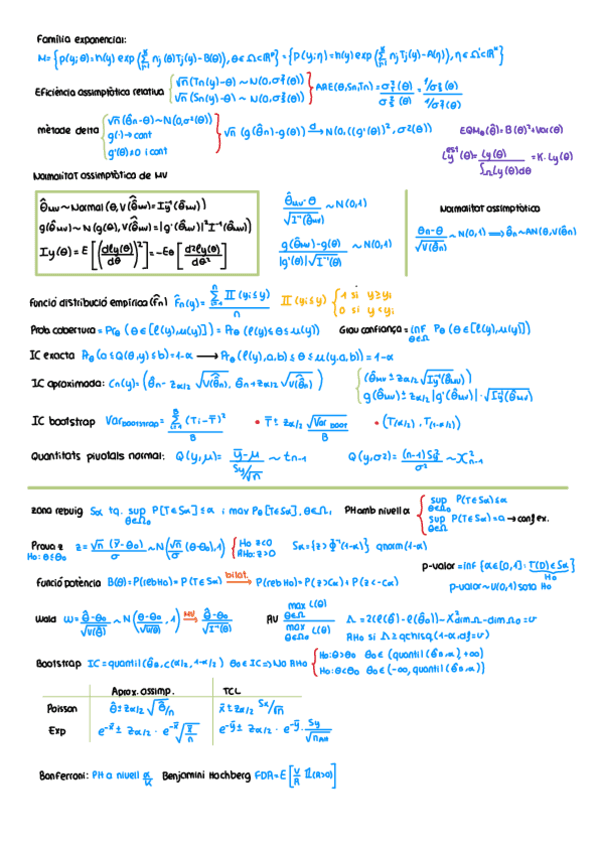 Família exponencial:
M={p(y;θ)=h(y) exp(Σ nj(θ)Tj(y)-B(θ)), θ∈Ω⊂ℝᵖ}={p(y;η)=h(y)exp(Σ ηjTj(y)-A(η)), η∈Ω'⊂ℝᵖ}
Eficiència assimptòtica relativa {√n(Tn(y)-θ) ~ N(0,σ₁²(θ)) √n(Sn(y)-θ) ~ N(0,σ₂²(θ))} ARE(θ,Sn,Tn)=
mètode delta {√n(θ̂n-θ)~N(0,σ²(θ)) g(·)→cont g'(θ)≠0 i cont} √n (g(θ̂n)-g(θ)) →d N(0,(g'(θ))², σ²(θ))
EQMθ(θ̂)=B(θ)²+Var(θ)
Ly^est(θ)=Ly(θ)/∫Ω Ly(θ)dθ = K·Ly(θ)
Normalitat assimptòtica de MV
θ̂MV ~ Normal(θ, V(θ̂MV)=Iy⁻¹(θ̂MV))
g(θ̂MV)~N(g(θ), V(θ̂MV)=|g'(θ̂MV)|²I⁻¹(θ̂MV))
Iy(θ)=E[(dly(θ)/dθ)²]=-Eθ[d²ly(θ)/dθ²]
θ̂MV-θ/√I⁻¹(θ̂MV) ~ N(0,1)
g(θ̂MV)-g(θ)/|g'(θ)|√I⁻¹(θ̂MV) ~ N(0,1)
Normalitat assimptòtica
θ̂n-θ/√V(θ̂n) ~ N(0,1) ⟹ θ̂n~AN(θ,V(θ̂n))
Funció distribució empírica (F̂n) F̂n(y)=Σ 𝕀(yi≤y)/n 𝕀(yi≤y) {1 si y≥yi 0 si y<yi
Prob cobertura = Prθ(θ∈[l(y),μ(y)])= Prθ(l(y)≤θ≤μ(y)) Grau confiança= inf θ∈Ω Pθ(θ∈[l(y),μ(y)])
IC exacta Prθ(a≤Q(θ,y)≤b)=1-α ⟶ Prθ(l(y,a,b)≤θ≤μ(y,a,b))=1-α
IC aproximada: Cn(y)=(θ̂n-zα/2 √V(θ̂n), θ̂n+zα/2 √V(θ̂n)) {θ̂MV±zα/2√Iy⁻¹(θ̂MV) g(θ̂MV)±zα/2|g'(θ̂MV)|·√Iy⁻¹(θ̂MV)
IC bootstrap Var bootstrap= Σ(Ti-T̄)²/B • T̄±zα/2 √Var boot/B • (T(α/2), T(1-α/2))
Quantitats pivotals normal: Q(y,μ)= ȳ-μ/Sy/√n ~ tn-1 Q(y,σ²)= (n-1)Sy²/σ² ~ X²n-1
zona rebuig Sα tq. sup θ∈Ω₀ P[T∈Sα]≤α i max Pθ[T∈Sα], θ∈Ω₁ PH amb nivell α {sup θ∈Ω₀ P(T∈Sα)≤α sup θ∈Ω₀ P(T∈Sα)=α→conf ex.
Prova z z=√n(ȳ-θ₀)/σ ~N(√n/σ (θ-θ₀),1) {H₀ z<0 RH₀: z>0 Sα={z>Φ⁻¹(1-α)} qnorm(1-α)
H₀: θ≤θ₀
p-valor=inf{α∈[0,1]: T(D)∈Sα}
Funció potència B(θ)=P(reb H₀)=P(T∈Sα) bilat.→ P(reb H₀)=P(z>Cα)+P(z<-Cα)
p-valor~U(0,1) sota H₀
Wald W=θ̂-θ₀/√V(θ̂) ~ N(θ-θ₀/√V(θ),1) MV→ θ̂-θ₀/√I⁻¹(θ̂)
RV max θ∈Ω L(θ)/max θ∈Ω₀ L(θ) Λ=2(l(θ̂)-l(θ̂₀))~X²dimΩ-dimΩ₀=υ
RH₀ si Λ≥qchisq(1-α,df=υ)
Bootstrap IC=quantil(θ̂b,c(α/2,1-α/2) θ₀∈IC⟹No RH₀ {H₀:θ>θ₀ θ₀∈(quantil(θ̂b,α),+∞) H₀:θ<θ₀ θ₀∈(-∞,quantil(θ̂b,α))
Aprox. assimp. TCL
Poisson θ̂±zα/2√θ̂/n x̄±zα/2 Sx/√n
Exp e⁻ˣ̄ ± zα/2 · e⁻ˣ̄√x̄/n e⁻ȳ ± zα/2 · e⁻ȳ·
Bonferroni: PH a nivell α/K Benjamini Hochberg FDR=E[V/R 𝟙(R>0)]